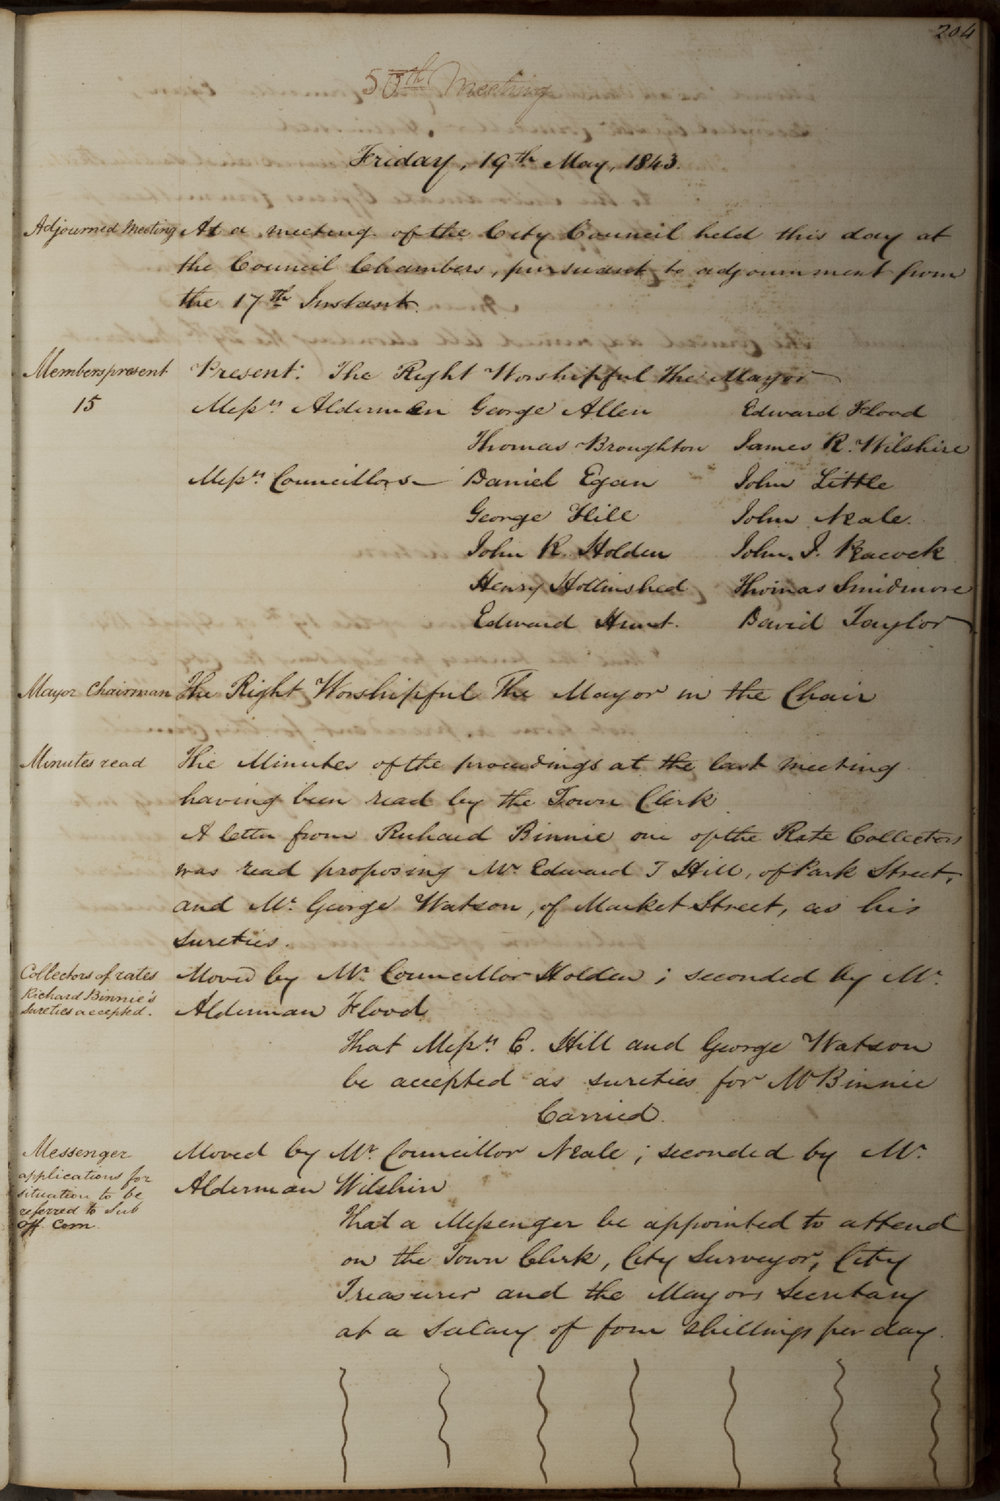 204
50th Meeting
Friday, 19th May, 1843.
Adjourned Meeting At a meeting of the City Council held this day at
the Council Chambers, pursuant to adjournment from
the 17th Instant.
Members present Present: The Right Worshipful The Mayor
15 Messrs Aldermen George Allen Edward Flood
Thomas Broughton James R. Wilshire
Messrs Councillors Daniel Egan John Little
George Hill John Neale
John R. Holden John J. Peacock
Henry Hollinshed Thomas Smidmore
Edward Hunt. David Taylor
Mayor Chairman The Right Worshipful The Mayor in the Chair
Minutes read The Minutes of the proceedings at the last meeting
having been read by the Town Clerk
A letter from Richard Binnie one of the Rate Collectors
was read proposing Mr Edward J Hill, of Park Street,
and Mr George Watson, of Market Street, as his
sureties.
Collectors of rates Moved by Mr Councillor Holden; seconded by Mr
Richard Binnie's
Sureties accepted. Alderman Flood
That Messrs E. Hill and George Watson
be accepted as sureties for Mr Binnie
Carried.
Messenger Moved by Mr Councillor Neale; seconded by Mr
applications for
situation to be Alderman Wilshire
referred to Sub
Off. Com. That a Messenger be appointed to attend
on the Town Clerk, City Surveyor, City
Treasurer and the Mayors Secretary
at a salary of four shillings per day.